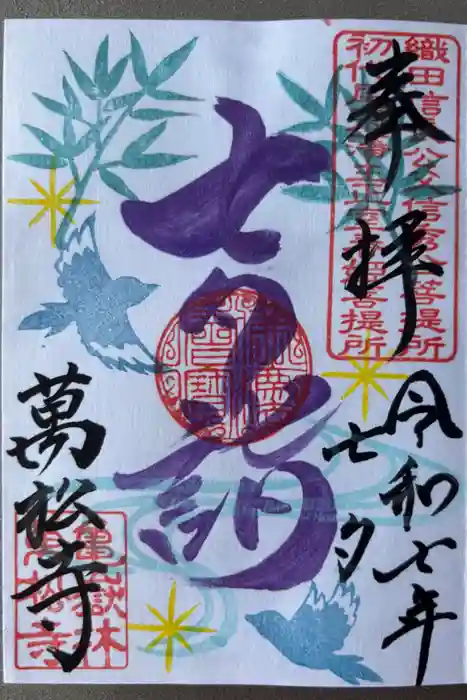 奉拝
織田信長公父信秀公菩提所
初代尾張藩主正室春姫菩提所
令和七年
七夕
七夕詣
萬松寺
亀嶽林
萬松寺